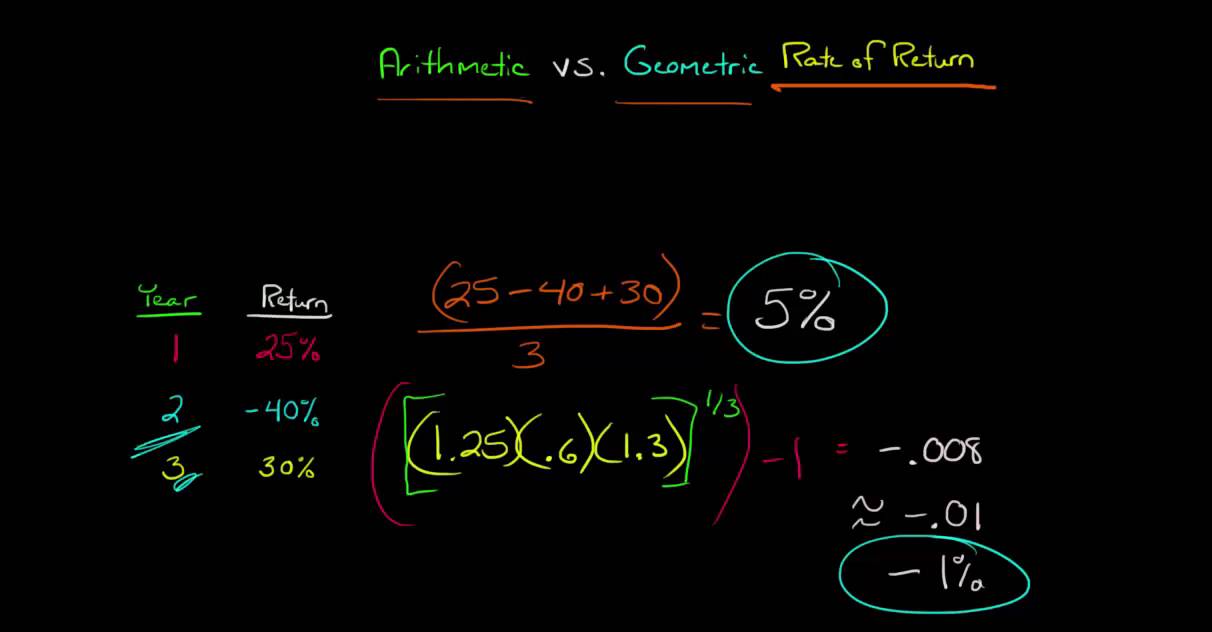 Arithmetic vs. Geometric Rate of Return
Year Return
1 25%
2 -40%
3 30%
(25-40+30)
3
= 5%
([(1.25)(.6)(1.3)]^1/3) - 1 = -.008
≈ -.01
-1%